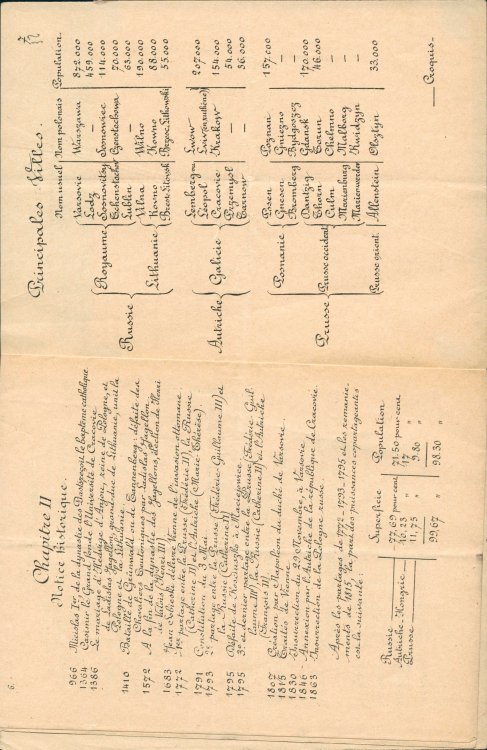 6.
Chapitre II
Notice historique.
966 Miecislas Ier, de la dynastie des Piast, reçoit le baptême catholique.
1364 Casimir le Grand fonde l'Université de Cracovie.
1386 Le mariage d'Hedwige d'Anjou, reine de Pologne, et
de Ladislas Jagellon, grand-duc de Lithuanie, unit la
Pologne et la Lithuanie.
1410 Bataille de Grünwald ou de Tannenberg: défaite des
Chevaliers Teutoniques par Ladislas Jagellon.
1572 A la fin de la dynastie des Jagellons, élection de Henri
de Valois (Henri III)
1683 Jean Sobieski délivre Vienne de l'invasion ottomane
1772 1er partage entre la Prusse (Frédéric II), la Russie
(Catherine II) et l'Autriche (Marie Thérèse).
1791 Constitution du 3 Mai.
1793 2e partage, entre la Prusse (Frédéric-Guillaume II) et
la Russie (Catherine II)
1795 Défaite de Kosciuszko à Maciejowice
1795 3e et dernier partage entre la Prusse (Frédéric-Guil-
laume II) la Russie (Catherine II) et l'Autriche
(François II).
1807 Création par Napoléon du duché de Varsovie.
1815 Traités de Vienne.
1830 Insurrection du 29 Novembre, à Varsovie
1846 Annexion par l'Autriche de la république de Cracovie.
1863 Insurrection de la Pologne russe.
Après les partages de 1772-1793-1795 et les remanie-
ments de 1815, la part des puissances copartageantes
est la suivante:
Superficie Population
Russie 77,69 pour cent. 71,50 pour cent.
Autriche-Hongrie 10,23 " 17 "
Prusse 11,75 " 9.80 "
99,67 " 98.30 "
7
Principales Villes.
Nom usuel Nom polonais Population.
Russie
Royaume
Varsovie Warszawa 872.000
Lodz — 459.000
Sosnovitsy Sosnowiec 114.000
Tchenstochov Częstochowa 70.000
Lublin — 63.000
Lithuanie
Vilna Wilno 190.000
Kovno Kowno 88.000
Brest-Litovsk Brzesc Litewski 55.000
Autriche
Galicie
Lemberg ou Lwow 207.000
Léopol Lwów (ruthène)
Cracovie Krakow 154.000
Przemysl — 54.000
Tarnow — 36.000
Prusse
Posnanie
Posen Poznan 157.000
Gnesen Gniezno —
Bromberg Bydgoszcz —
Prusse occident.
Dantzig Gdansk 170.000
Thorn Torun 46.000
Culm Chelmno —
Marienburg Malborg —
Marienwerder Kwidzyn —
Prusse orient.
Allenstein Olsztyn 33.000
— Croquis —